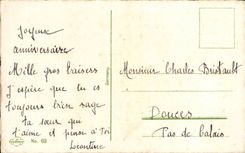 Joyeux
anniversaire
Mille gros baisers
J'espère que tu es
toujours bien sage
ta sœur qui
t'aime et pense à toi
Monsieur Charles
Pas de Calais
No.